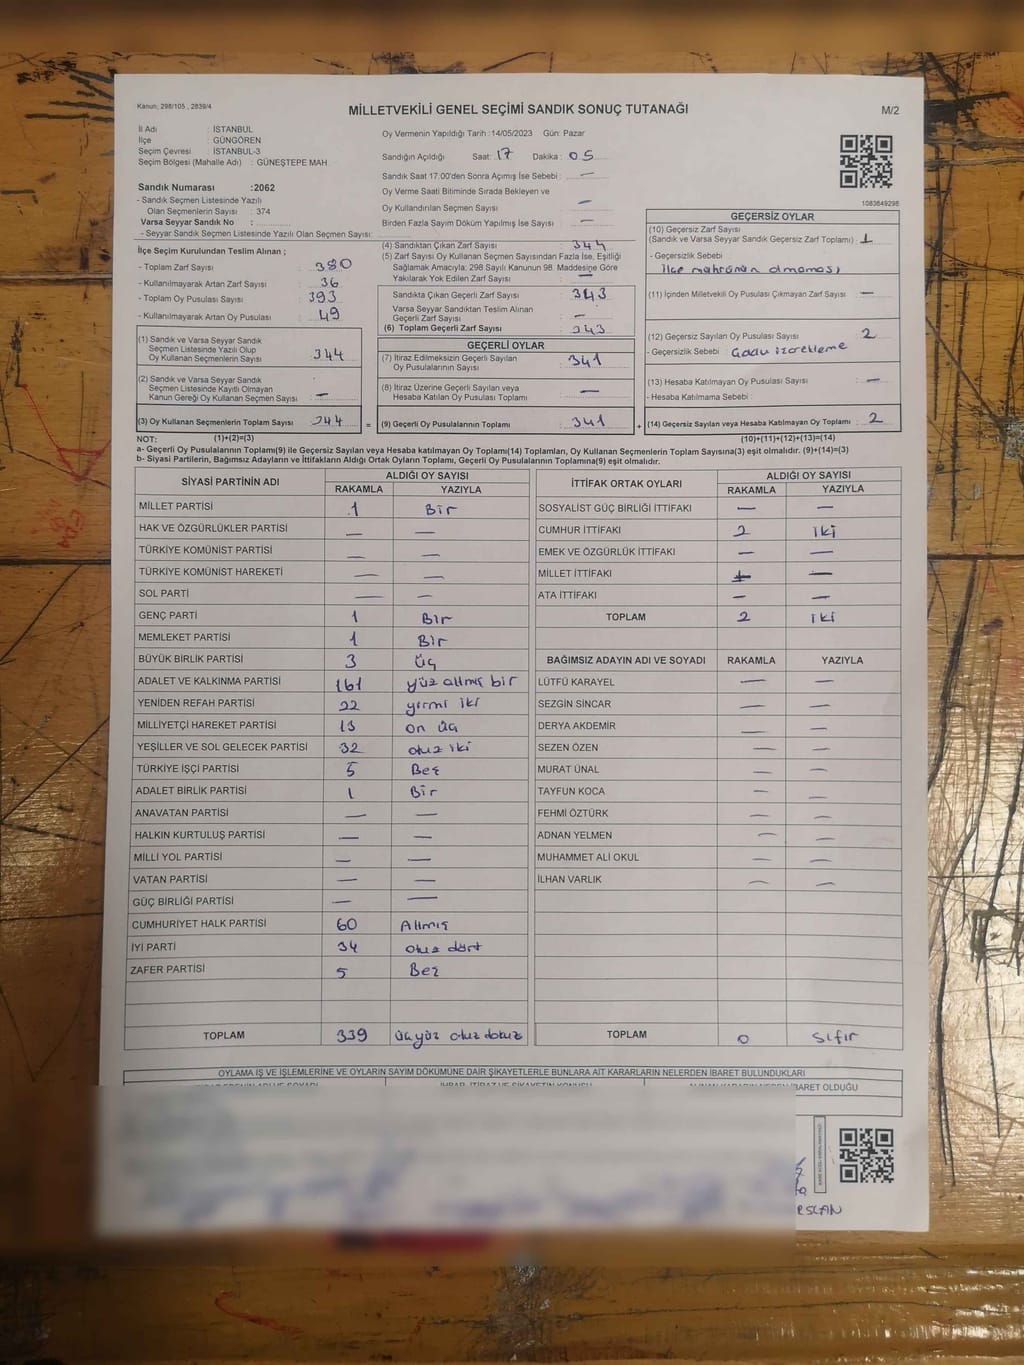 Kanun; 298/105 , 2839/4
MİLLETVEKİLİ GENEL SEÇİMİ SANDIK SONUÇ TUTANAĞI
M/2
İl Adı : İSTANBUL
İlçe : GÜNGÖREN
Seçim Çevresi : İSTANBUL-3
Seçim Bölgesi (Mahalle Adı) : GÜNEŞTEPE MAH.
Sandık Numarası :2062
- Sandık Seçmen Listesinde Yazılı
Olan Seçmenlerin Sayısı : 374
Varsa Seyyar Sandık No :
- Seyyar Sandık Seçmen Listesinde Yazılı Olan Seçmen Sayısı:
Oy Vermenin Yapıldığı Tarih :14/05/2023 Gün: Pazar
Sandığın Açıldığı Saat: 17 Dakika : 05
Sandık Saat 17.00'den Sonra Açımış İse Sebebi : —
Oy Verme Saati Bitiminde Sırada Bekleyen ve
Oy Kullandırılan Seçmen Sayısı —
Birden Fazla Sayım Döküm Yapılmış İse Sayısı : —
1083649298
İlçe Seçim Kurulundan Teslim Alınan ;
- Toplam Zarf Sayısı : 380
- Kullanılmayarak Artan Zarf Sayısı : 36
- Toplam Oy Pusulası Sayısı : 393
- Kullanılmayarak Artan Oy Pusulası : 49
(1) Sandık ve Varsa Seyyar Sandık
Seçmen Listesinde Yazılı Olup
Oy Kullanan Seçmenlerin Sayısı : 344
(2) Sandık ve Varsa Seyyar Sandık
Seçmen Listesinde Kayıtlı Olmayan
Kanun Gereği Oy Kullanan Seçmen Sayısı : —
(3) Oy Kullanan Seçmenlerin Toplam Sayısı : 344
(4) Sandıktan Çıkan Zarf Sayısı : 344
(5) Zarf Sayısı Oy Kullanan Seçmen Sayısından Fazla İse, Eşitliği
Sağlamak Amacıyla; 298 Sayılı Kanunun 98. Maddesine Göre
Yakılarak Yok Edilen Zarf Sayısı : —
Sandıkta Çıkan Geçerli Zarf Sayısı : 343
Varsa Seyyar Sandıktan Teslim Alınan
Geçerli Zarf Sayısı : —
(6) Toplam Geçerli Zarf Sayısı : 343
GEÇERLİ OYLAR
(7) İtiraz Edilmeksizin Geçerli Sayılan
Oy Pusulalarının Sayısı : 341
(8) İtiraz Üzerine Geçerli Sayılan veya
Hesaba Katılan Oy Pusulası Toplamı : —
= (9) Geçerli Oy Pusulalarının Toplamı : 341
GEÇERSİZ OYLAR
(10) Geçersiz Zarf Sayısı
(Sandık ve Varsa Seyyar Sandık Geçersiz Zarf Toplamı) : 1
- Geçersizlik Sebebi
İlçe mührünün olmaması
(11) İçinden Milletvekili Oy Pusulası Çıkmayan Zarf Sayısı : —
(12) Geçersiz Sayılan Oy Pusulası Sayısı : 2
- Geçersizlik Sebebi :
(13) Hesaba Katılmayan Oy Pusulası Sayısı : —
- Hesaba Katılmama Sebebi :
+ (14) Geçersiz Sayılan veya Hesaba Katılmayan Oy Toplamı : 2
NOT: (1)+(2)=(3) (10)+(11)+(12)+(13)=(14)
a- Geçerli Oy Pusulalarının Toplamı(9) ile Geçersiz Sayılan veya Hesaba katılmayan Oy Toplamı(14) Toplamları, Oy Kullanan Seçmenlerin Toplam Sayısına(3) eşit olmalıdır. (9)+(14)=(3)
b- Siyasi Partilerin, Bağımsız Adayların ve İttifakların Aldığı Ortak Oyların Toplamı, Geçerli Oy Pusulalarının Toplamına(9) eşit olmalıdır.
SİYASİ PARTİNİN ADI ALDIĞI OY SAYISI
RAKAMLA YAZIYLA
MİLLET PARTİSİ 1 Bir
HAK VE ÖZGÜRLÜKLER PARTİSİ — —
TÜRKİYE KOMÜNİST PARTİSİ — —
TÜRKİYE KOMÜNİST HAREKETİ — —
SOL PARTİ — —
GENÇ PARTİ 1 Bir
MEMLEKET PARTİSİ 1 Bir
BÜYÜK BİRLİK PARTİSİ 3 Üç
ADALET VE KALKINMA PARTİSİ 161 yüz altmış bir
YENİDEN REFAH PARTİSİ 22 yirmi iki
MİLLİYETÇİ HAREKET PARTİSİ 13 on üç
YEŞİLLER VE SOL GELECEK PARTİSİ 32 otuz iki
TÜRKİYE İŞÇİ PARTİSİ 5 Beş
ADALET BİRLİK PARTİSİ 1 Bir
ANAVATAN PARTİSİ — —
HALKIN KURTULUŞ PARTİSİ — —
MİLLİ YOL PARTİSİ — —
VATAN PARTİSİ — —
GÜÇ BİRLİĞİ PARTİSİ — —
CUMHURİYET HALK PARTİSİ 60 Altmış
İYİ PARTİ 34 otuz dört
ZAFER PARTİSİ 5 Beş
TOPLAM 339 üçyüz otuz dokuz
İTTİFAK ORTAK OYLARI ALDIĞI OY SAYISI
RAKAMLA YAZIYLA
SOSYALİST GÜÇ BİRLİĞİ İTTİFAKI — —
CUMHUR İTTİFAKI 2 iki
EMEK VE ÖZGÜRLÜK İTTİFAKI — —
MİLLET İTTİFAKI — —
ATA İTTİFAKI — —
TOPLAM 2 iki
BAĞIMSIZ ADAYIN ADI VE SOYADI RAKAMLA YAZIYLA
LÜTFÜ KARAYEL — —
SEZGİN SİNCAR — —
DERYA AKDEMİR — —
SEZEN ÖZEN — —
MURAT ÜNAL — —
TAYFUN KOCA — —
FEHMİ ÖZTÜRK — —
ADNAN YELMEN — —
MUHAMMET ALİ OKUL — —
İLHAN VARLIK — —
TOPLAM 0 sıfır
OYLAMA İŞ VE İŞLEMLERİNE VE OYLARIN SAYIM DÖKÜMÜNE DAİR ŞİKAYETLERLE BUNLARA AİT KARARLARIN NELERDEN İBARET BULUNDUKLARI
İBARET OLDUĞU